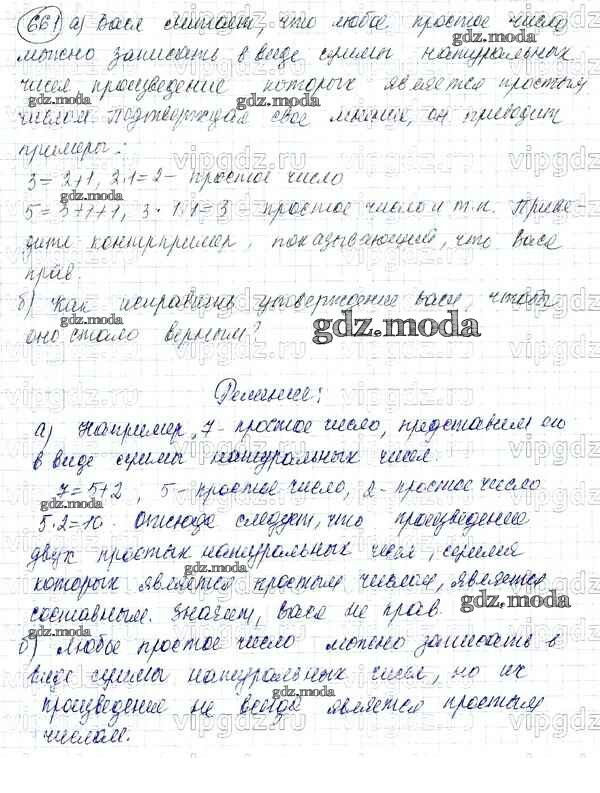 661 а) Вася считает, что любое простое число
можно записать в виде суммы натуральных
чисел произведение которых является простым
числом. Подтверждая свое мнение, он приводит
примеры:
3 = 2+1, 2·1=2 - простое число
5 = 3+1+1, 3·1·1=3 простое число и т.п. Приве-
дите контрпример, показывающий, что Вася
прав.
б) Как исправить утверждение Васи, чтобы
оно стало верным?
gdz.moda
Решение:
а) Например, 7 - простое число, представим его
в виде суммы натуральных чисел.
7=5+2, 5 - простое число, 2 - простое число
5·2=10. Отсюда следует, что произведение
двух простых натуральных чисел, сумма
которых является простым числом, является
составным. Значит, Вася не прав.
gdz.moda
б) Любое простое число можно записать в
виде суммы натуральных чисел, но их
произведение не всегда является простым
числом.
vipgdz.ru